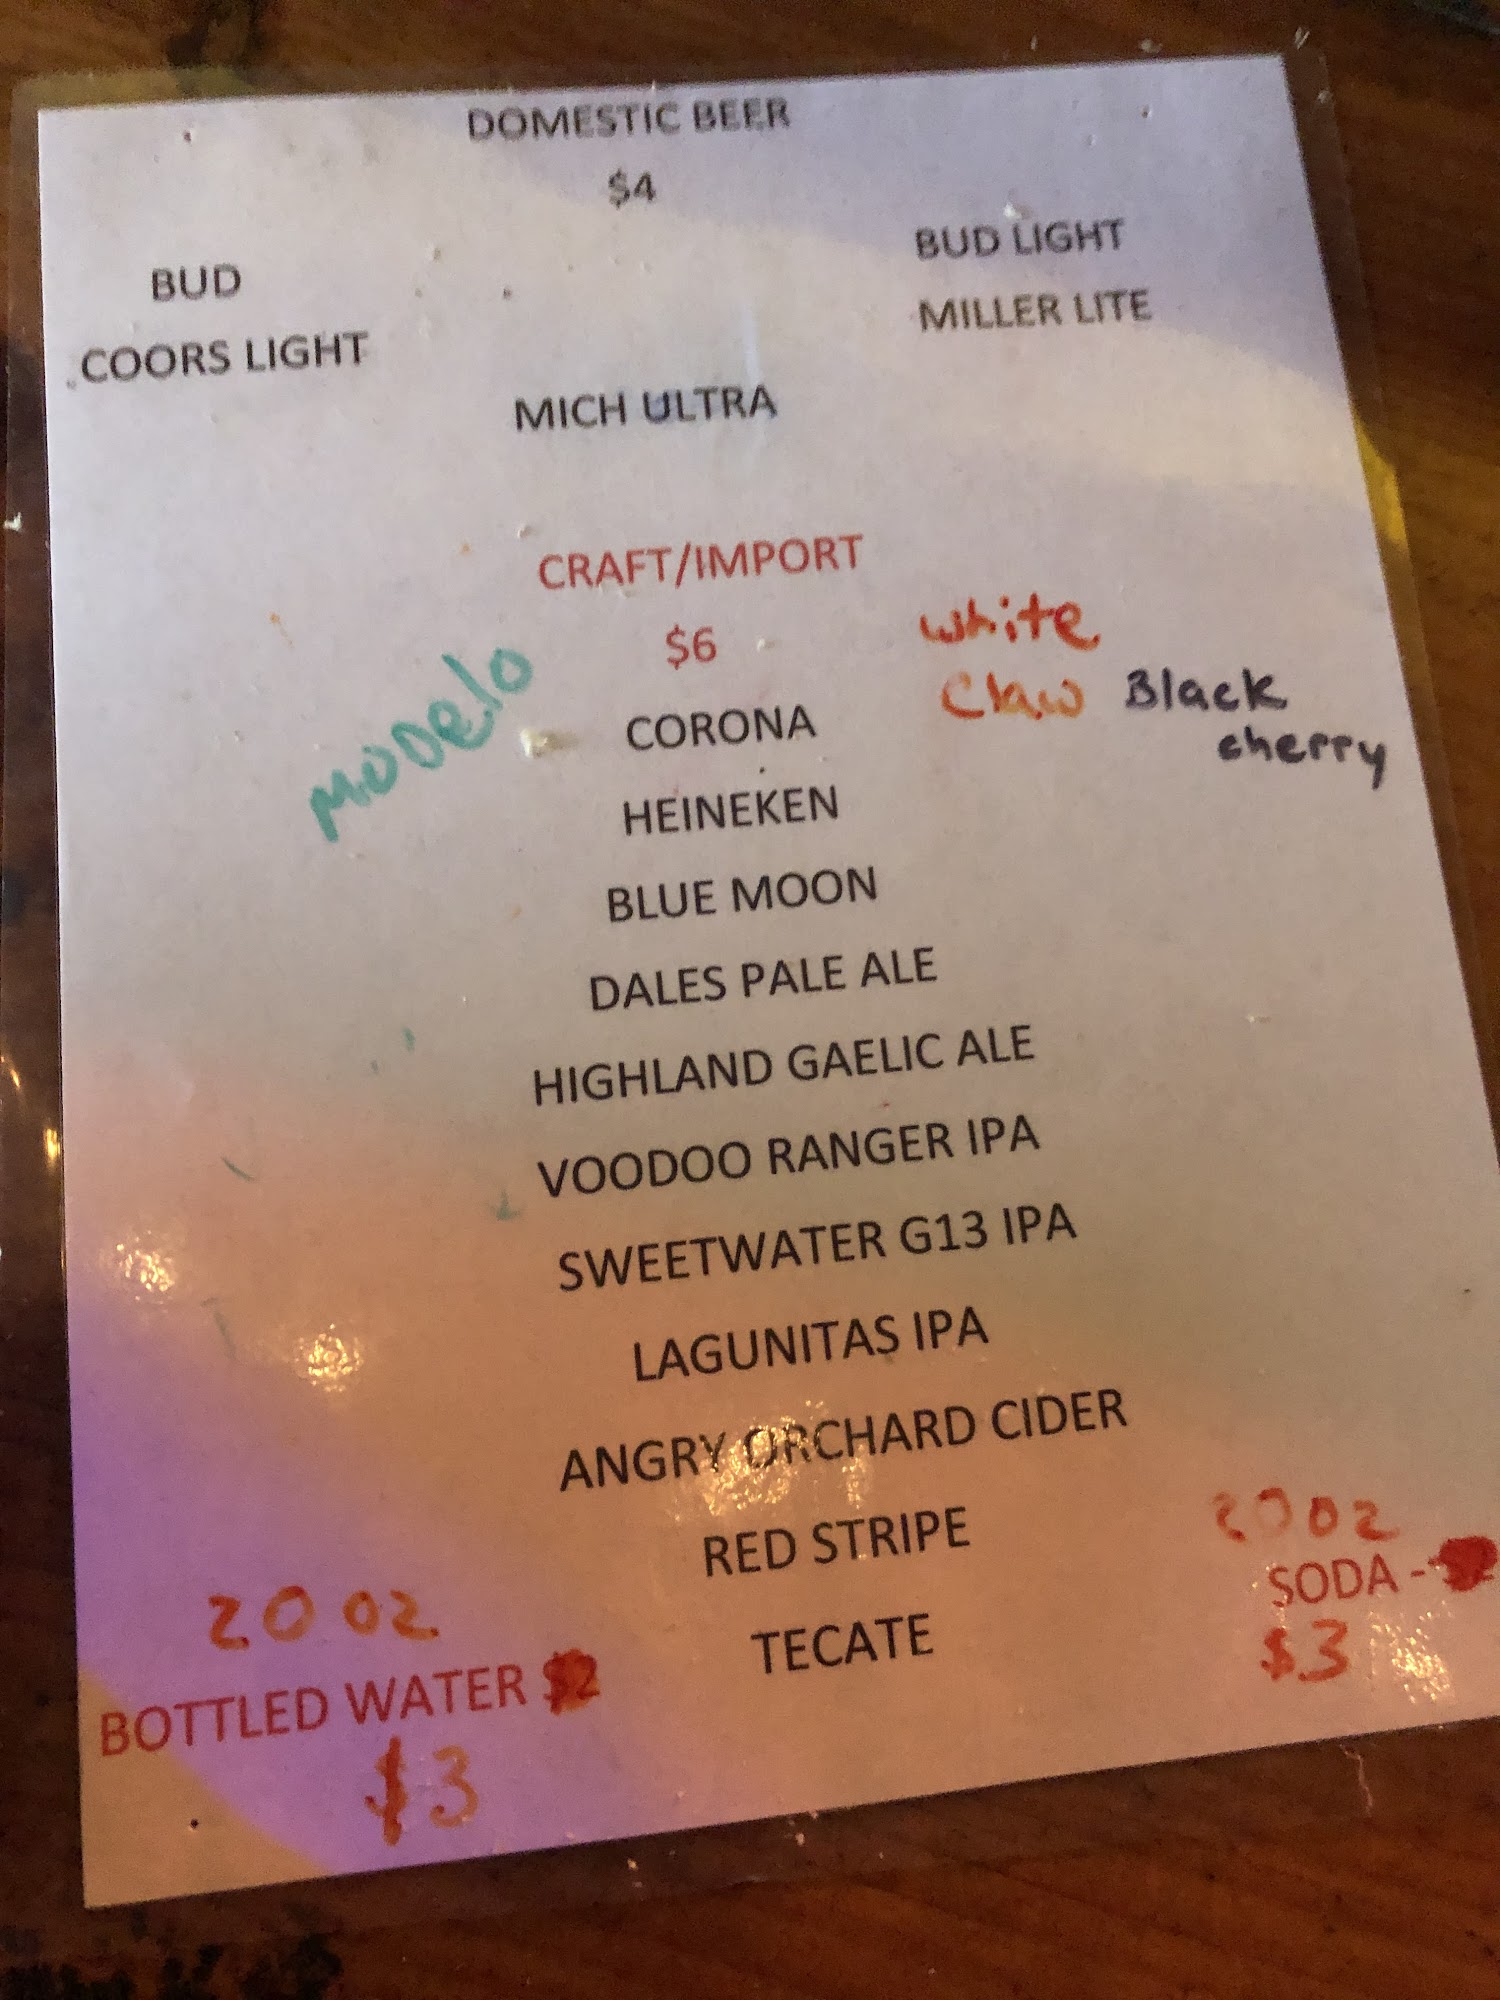 DOMESTIC BEER
$4
BUD
BUD LIGHT
COORS LIGHT
MILLER LITE
MICH ULTRA
CRAFT/IMPORT
$6
MODelo
white
Claw Black
cherry
CORONA
HEINEKEN
BLUE MOON
DALES PALE ALE
HIGHLAND GAELIC ALE
VOODOO RANGER IPA
SWEETWATER G13 IPA
LAGUNITAS IPA
ANGRY ORCHARD CIDER
RED STRIPE
TECATE
20 oz
SODA - $2
$3
20 oz.
BOTTLED WATER $2
$3